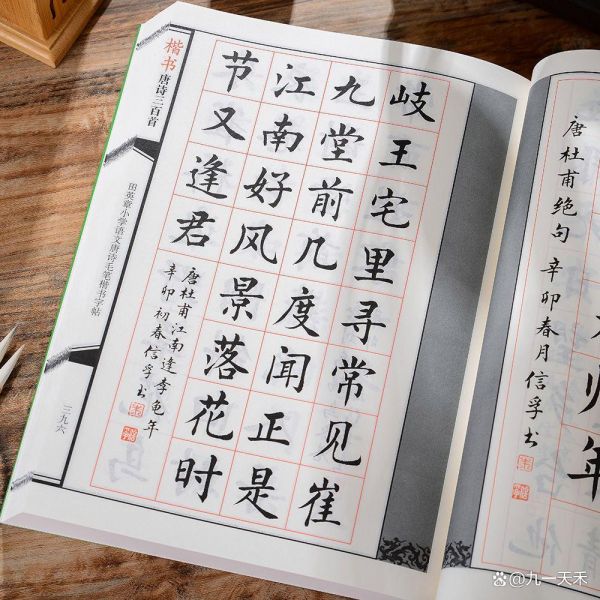 楷书 唐诗三百首
田英章小学语文唐诗毛笔楷书字帖
三九六
岐王宅里寻常见崔
九堂前几度闻正是
江南好风景落花时
节又逢君
唐杜甫江南逢李龟年
辛卯初春信孚书
年
唐杜甫绝句 辛卯春月信孚书
九一天禾